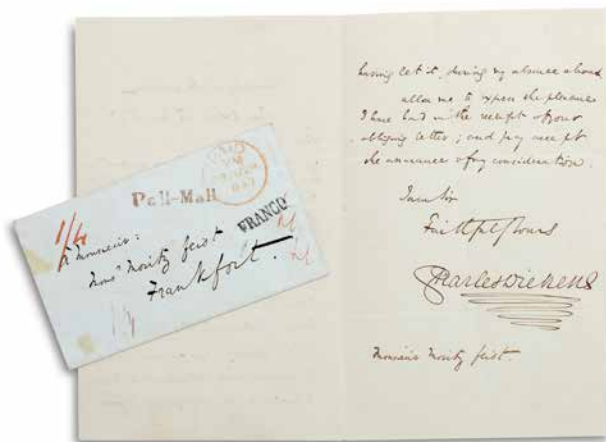 having let it, during my absence abroad
allow me to express the pleasure
I have had in the receipt of your
obliging letter; and pray accept
the assurance of my consideration.
Dear Sir
Faithfully Yours
Charles Dickens
Monsieur Moritz feist.
PAID
1847
Pall-Mall
1/4
FRANCO
A Monsieur:
Monsr Moritz feist
Frankfort.